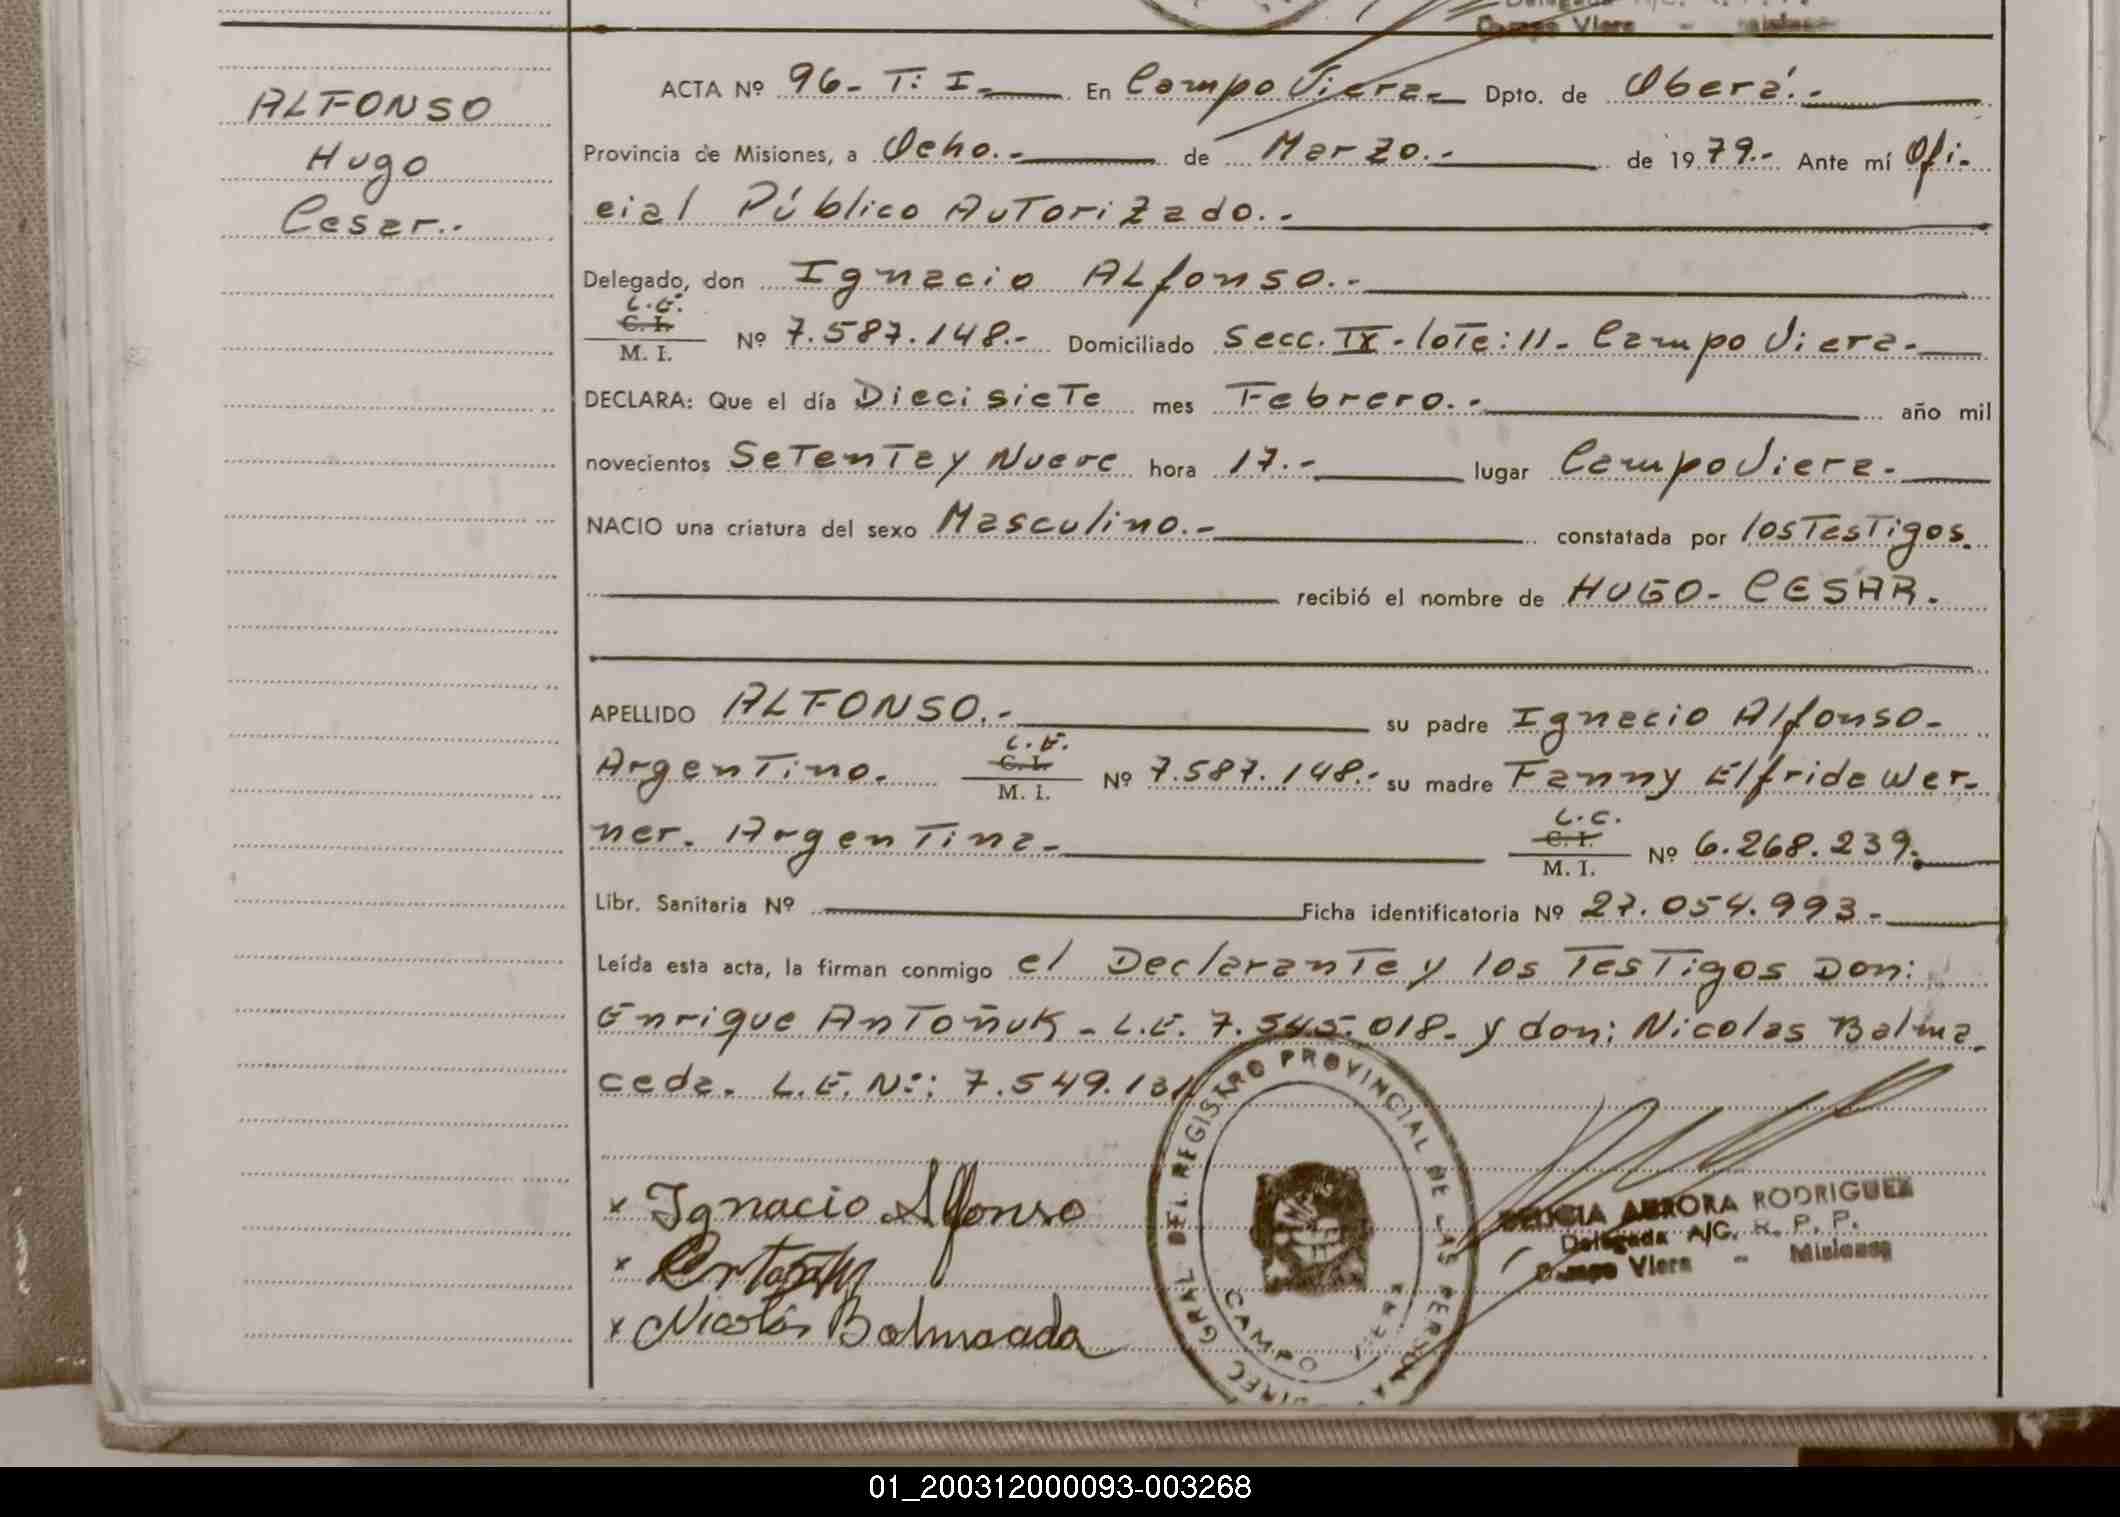 Campo Viera - Misiones
ALFONSO
Hugo
Cesar.-
ACTA Nº 96- T: I.- En Campo Viera.- Dpto. de Oberá.-
Provincia de Misiones, a Ocho.- de Marzo.- de 1979.- Ante mí Ofi-
cial Público Autorizado.-
Delegado, don Ignacio Alfonso.-
L.E.
C. I.
M. I.
Nº 7.587.148.- Domiciliado Secc. IX - lote: 11 - Campo Viera.-
DECLARA: Que el día Diecisiete mes Febrero.- año mil
novecientos Setenta y Nueve hora 17.- lugar Campo Viera.
NACIO una criatura del sexo Masculino.- constatada por los Testigos.
recibió el nombre de HUGO - CESAR.
APELLIDO ALFONSO.- su padre Ignacio Alfonso-
L.E.
Argentino. C. I. Nº 7.587.148.- su madre Fanny Elfride Wer-
M. I.
L.C.
ner. Argentina.- C. I. Nº 6.268.239.
M. I.
Libr. Sanitaria Nº Ficha identificatoria Nº 27.054.993.-
Leída esta acta, la firman conmigo el Declarante y los Testigos Don:
Enrique Antoñuk - L.E. 7.545.018- y don: Nicolas Balma-
ceda. L.E. Nº: 7.549.131
x Ignacio Alfonso
x
x Nicolás Balmaceda
DIREC. GRAL. DEL REGISTRO PROVINCIAL DE LAS PERSONAS
CAMPO VIERA
AURORA RODRIGUEZ
Delegada A/C. R. P. P.
Campo Viera - Misiones
01_200312000093-003268